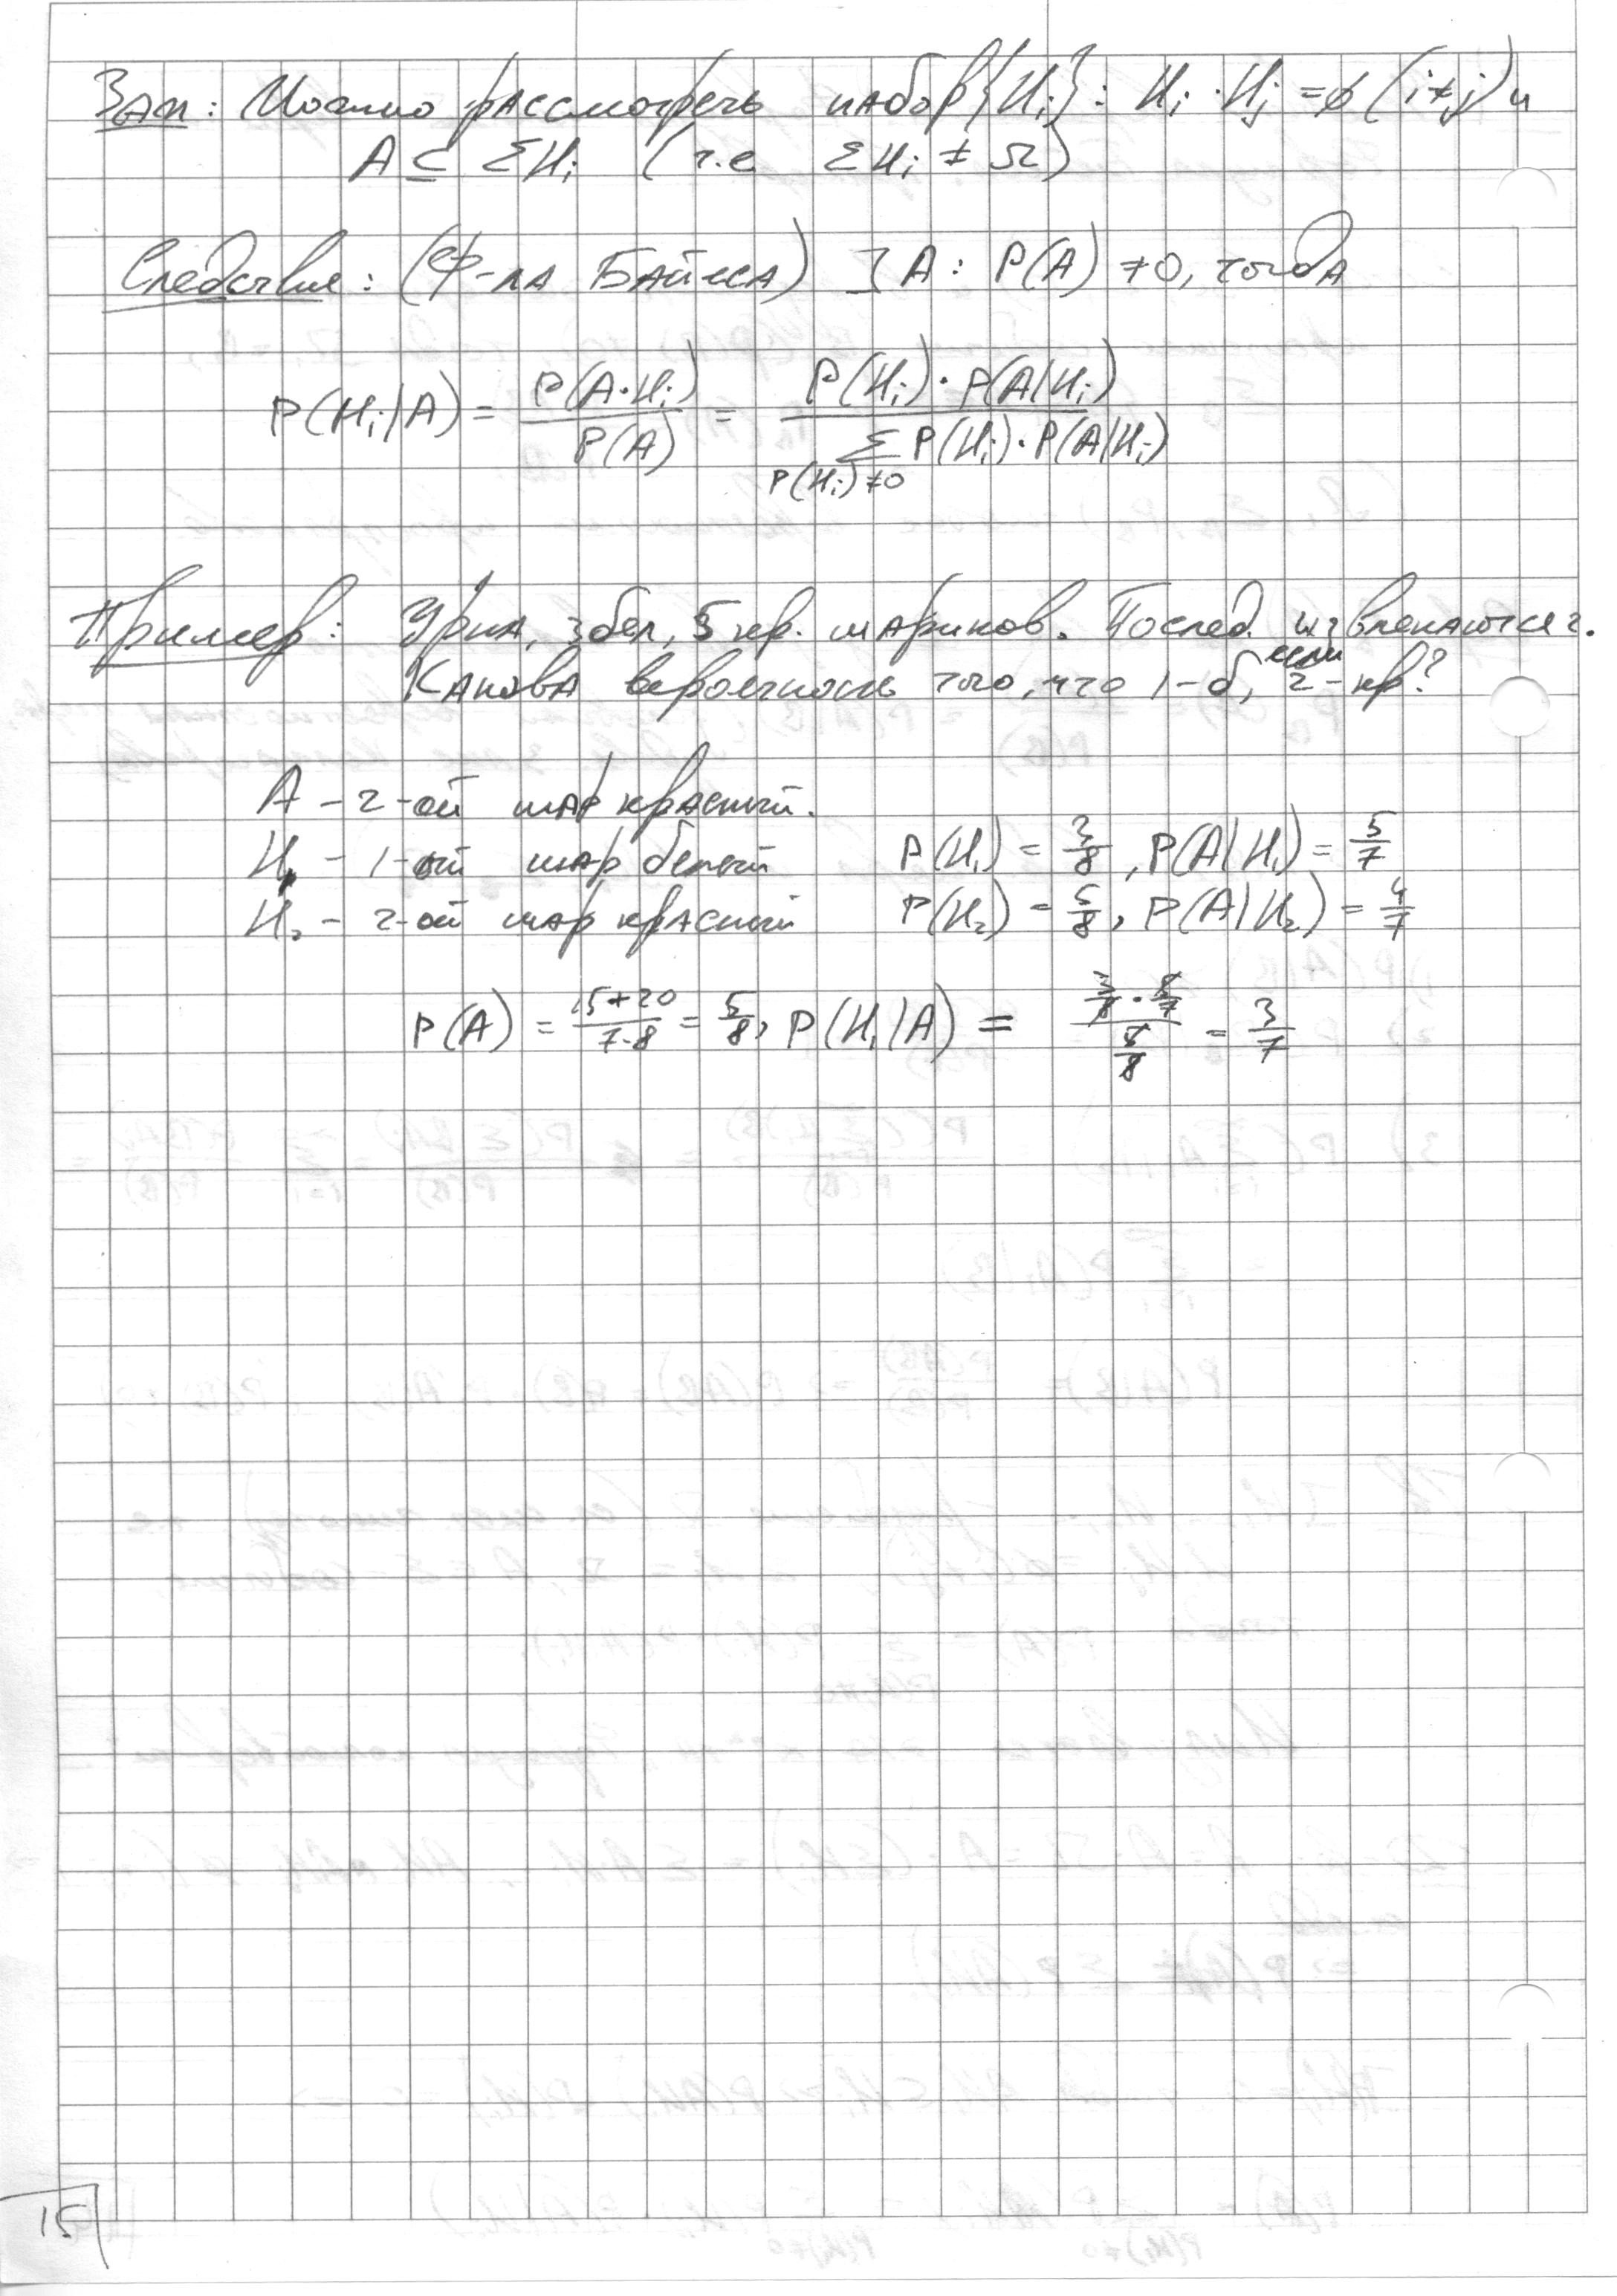 Зам: Можно рассмотреть набор {Hᵢ}: Hᵢ · Hⱼ = ∅ (i≠j) и
A ⊆ ΣHᵢ (т.е ΣHᵢ ≠ Ω)
Следствие: (Ф-ла Байеса) ] A: P(A) ≠ 0, тогда
P(Hᵢ|A) = P(A·Hᵢ)/P(A) = P(Hᵢ)·P(A|Hᵢ) / Σ P(Hᵢ)·P(A|Hᵢ)
P(Hᵢ)≠0
Пример: Урна, 3 бел, 5 кр. шариков. Послед. извлекаются 2.
Какова вероятность того, что 1-б, если 2-кр?
A - 2-ой шар красный.
H₁ - 1-ый шар белый P(H₁) = 3/8, P(A|H₁) = 5/7
H₂ - 2-ой шар красный P(H₂) = 5/8, P(A|H₂) = 4/7
P(A) = (15+20)/(7·8) = 5/8, P(H₁|A) = (3/8 · 5/7)/(5/8) = 3/7
15